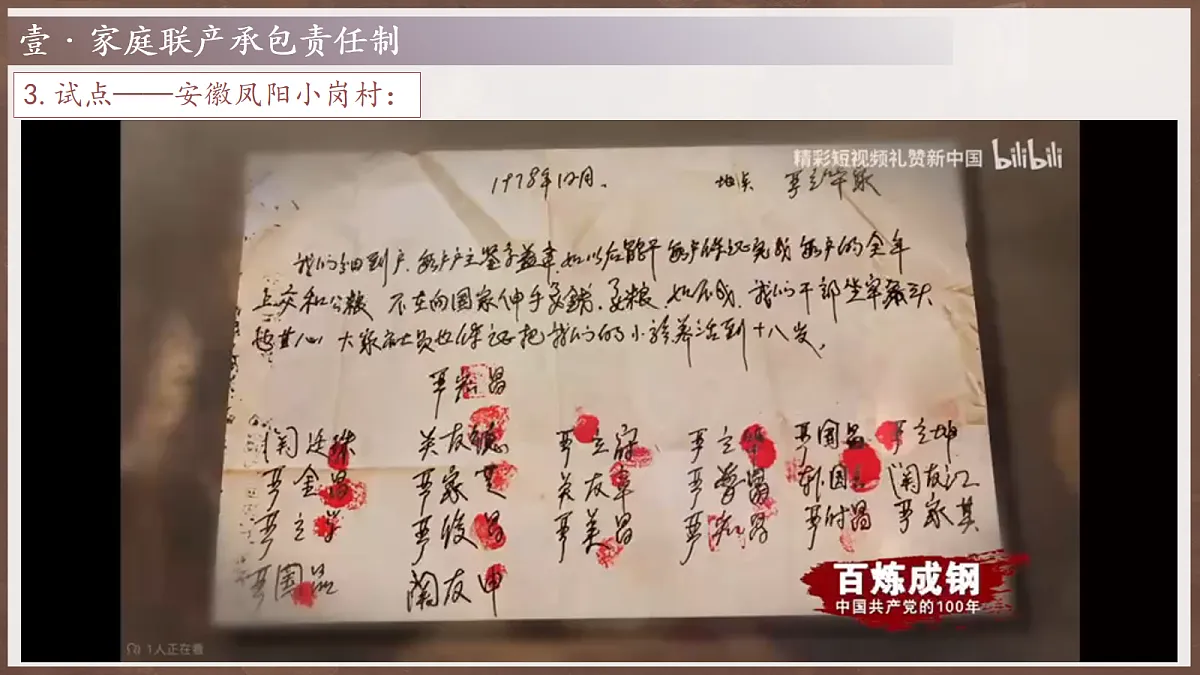 壹·家庭联产承包责任制
3. 试点——安徽凤阳小岗村：
精彩短视频礼赞新中国 bilibili
1978年12月. 地点 严立华家
我们分田到户.每户户主签字盖章.如以后能干每户保证完成每户的全年
上交和公粮 不在向国家伸手要钱.要粮 如不成.我们干部坐牢杀头
也甘心 大家社员也保证把我们的小孩养活到十八岁.
严宏昌
关友德 严立符 严立华 严国昌 严立坤
严金昌 严家芝 关友章 严学昌 韩国云 关友江
严立学 严俊昌 严美昌 严付昌 严家其
严国品 关友申
百炼成钢
中国共产党的100年
1人正在看